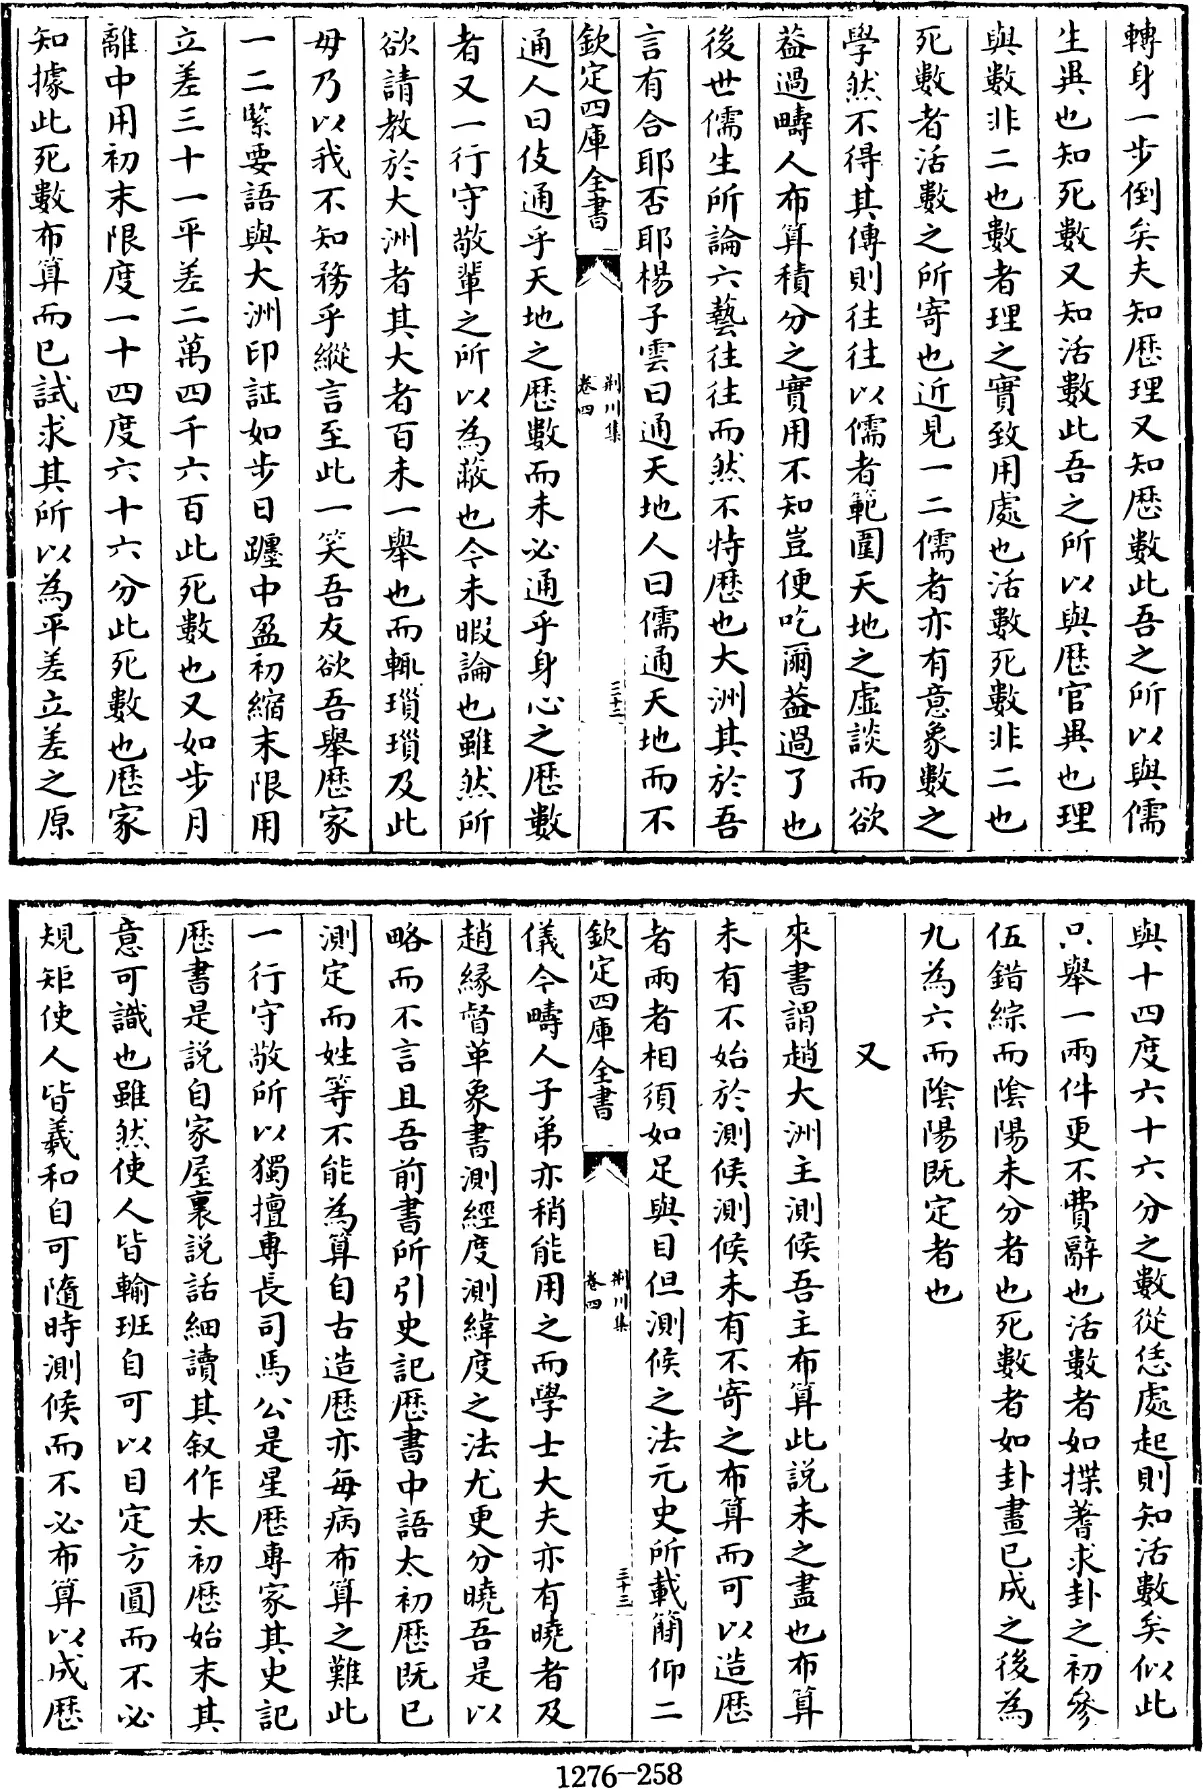 轉身一步倒矣夫知厯理又知厯數此吾之所以與儒
生異也知死數又知活數此吾之所以與厯官異也理
與數非二也數者理之實致用處也活數死數非二也
死數者活數之所寄也近見一二儒者亦有意象數之
學然不得其傳則往往以儒者範圍天地之虛談而欲
葢過疇人布算積分之實用不知豈便吃爾葢過了也
後世儒生所論六藝往往而然不特厯也大洲其於吾
言有合耶否耶楊子雲曰通天地人曰儒通天地而不
欽定四庫全書
荆川集
卷四
三十二
通人曰伎通乎天地之厯數而未必通乎身心之厯數
者又一行守敬輩之所以為蔽也今未暇論也雖然所
欲請教於大洲者其大者百未一舉也而輒瑣瑣及此
毋乃以我不知務乎縱言至此一笑吾友欲吾舉厯家
一二緊要語與大洲印証如步日躔中盈初縮末限用
立差三十一平差二萬四千六百此死數也又如步月
離中用初末限度一十四度六十六分此死數也厯家
知據此死數布算而已試求其所以為平差立差之原
與十四度六十六分之數從恁處起則知活數矣似此
只舉一兩件更不費辭也活數者如揲蓍求卦之初參
伍錯綜而陰陽未分者也死數者如卦畫已成之後為
九為六而陰陽既定者也
又
來書謂趙大洲主測候吾主布算此說未之盡也布算
未有不始於測候測候未有不寄之布算而可以造厯
者兩者相須如足與目但測候之法元史所載簡仰二
欽定四庫全書
荆川集
卷四
三十三
儀今疇人子弟亦稍能用之而學士大夫亦有曉者及
趙緣督革象書測經度測緯度之法尤更分曉吾是以
略而不言且吾前書所引史記厯書中語太初厯既已
測定而姓等不能為算自古造厯亦每病布算之難此
一行守敬所以獨擅專長司馬公是星厯專家其史記
厯書是說自家屋裏說話細讀其叙作太初厯始末其
意可識也雖然使人皆輸班自可以目定方圓而不必
規矩使人皆羲和自可隨時測候而不必布算以成厯
1276-258